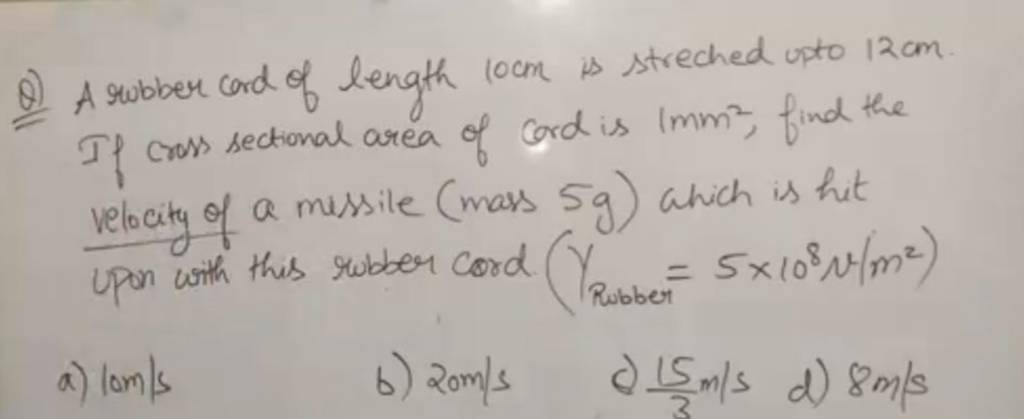 Q) A rubber cord of length 10cm is streched upto 12cm.
If cross sectional area of cord is 1mm², find the
velocity of a missile (mass 5g) which is hit
upon with this rubber cord (Y_Rubber = 5×10⁸ N/m²)
a) 10m/s b) 20m/s c) 15/3 m/s d) 8m/s